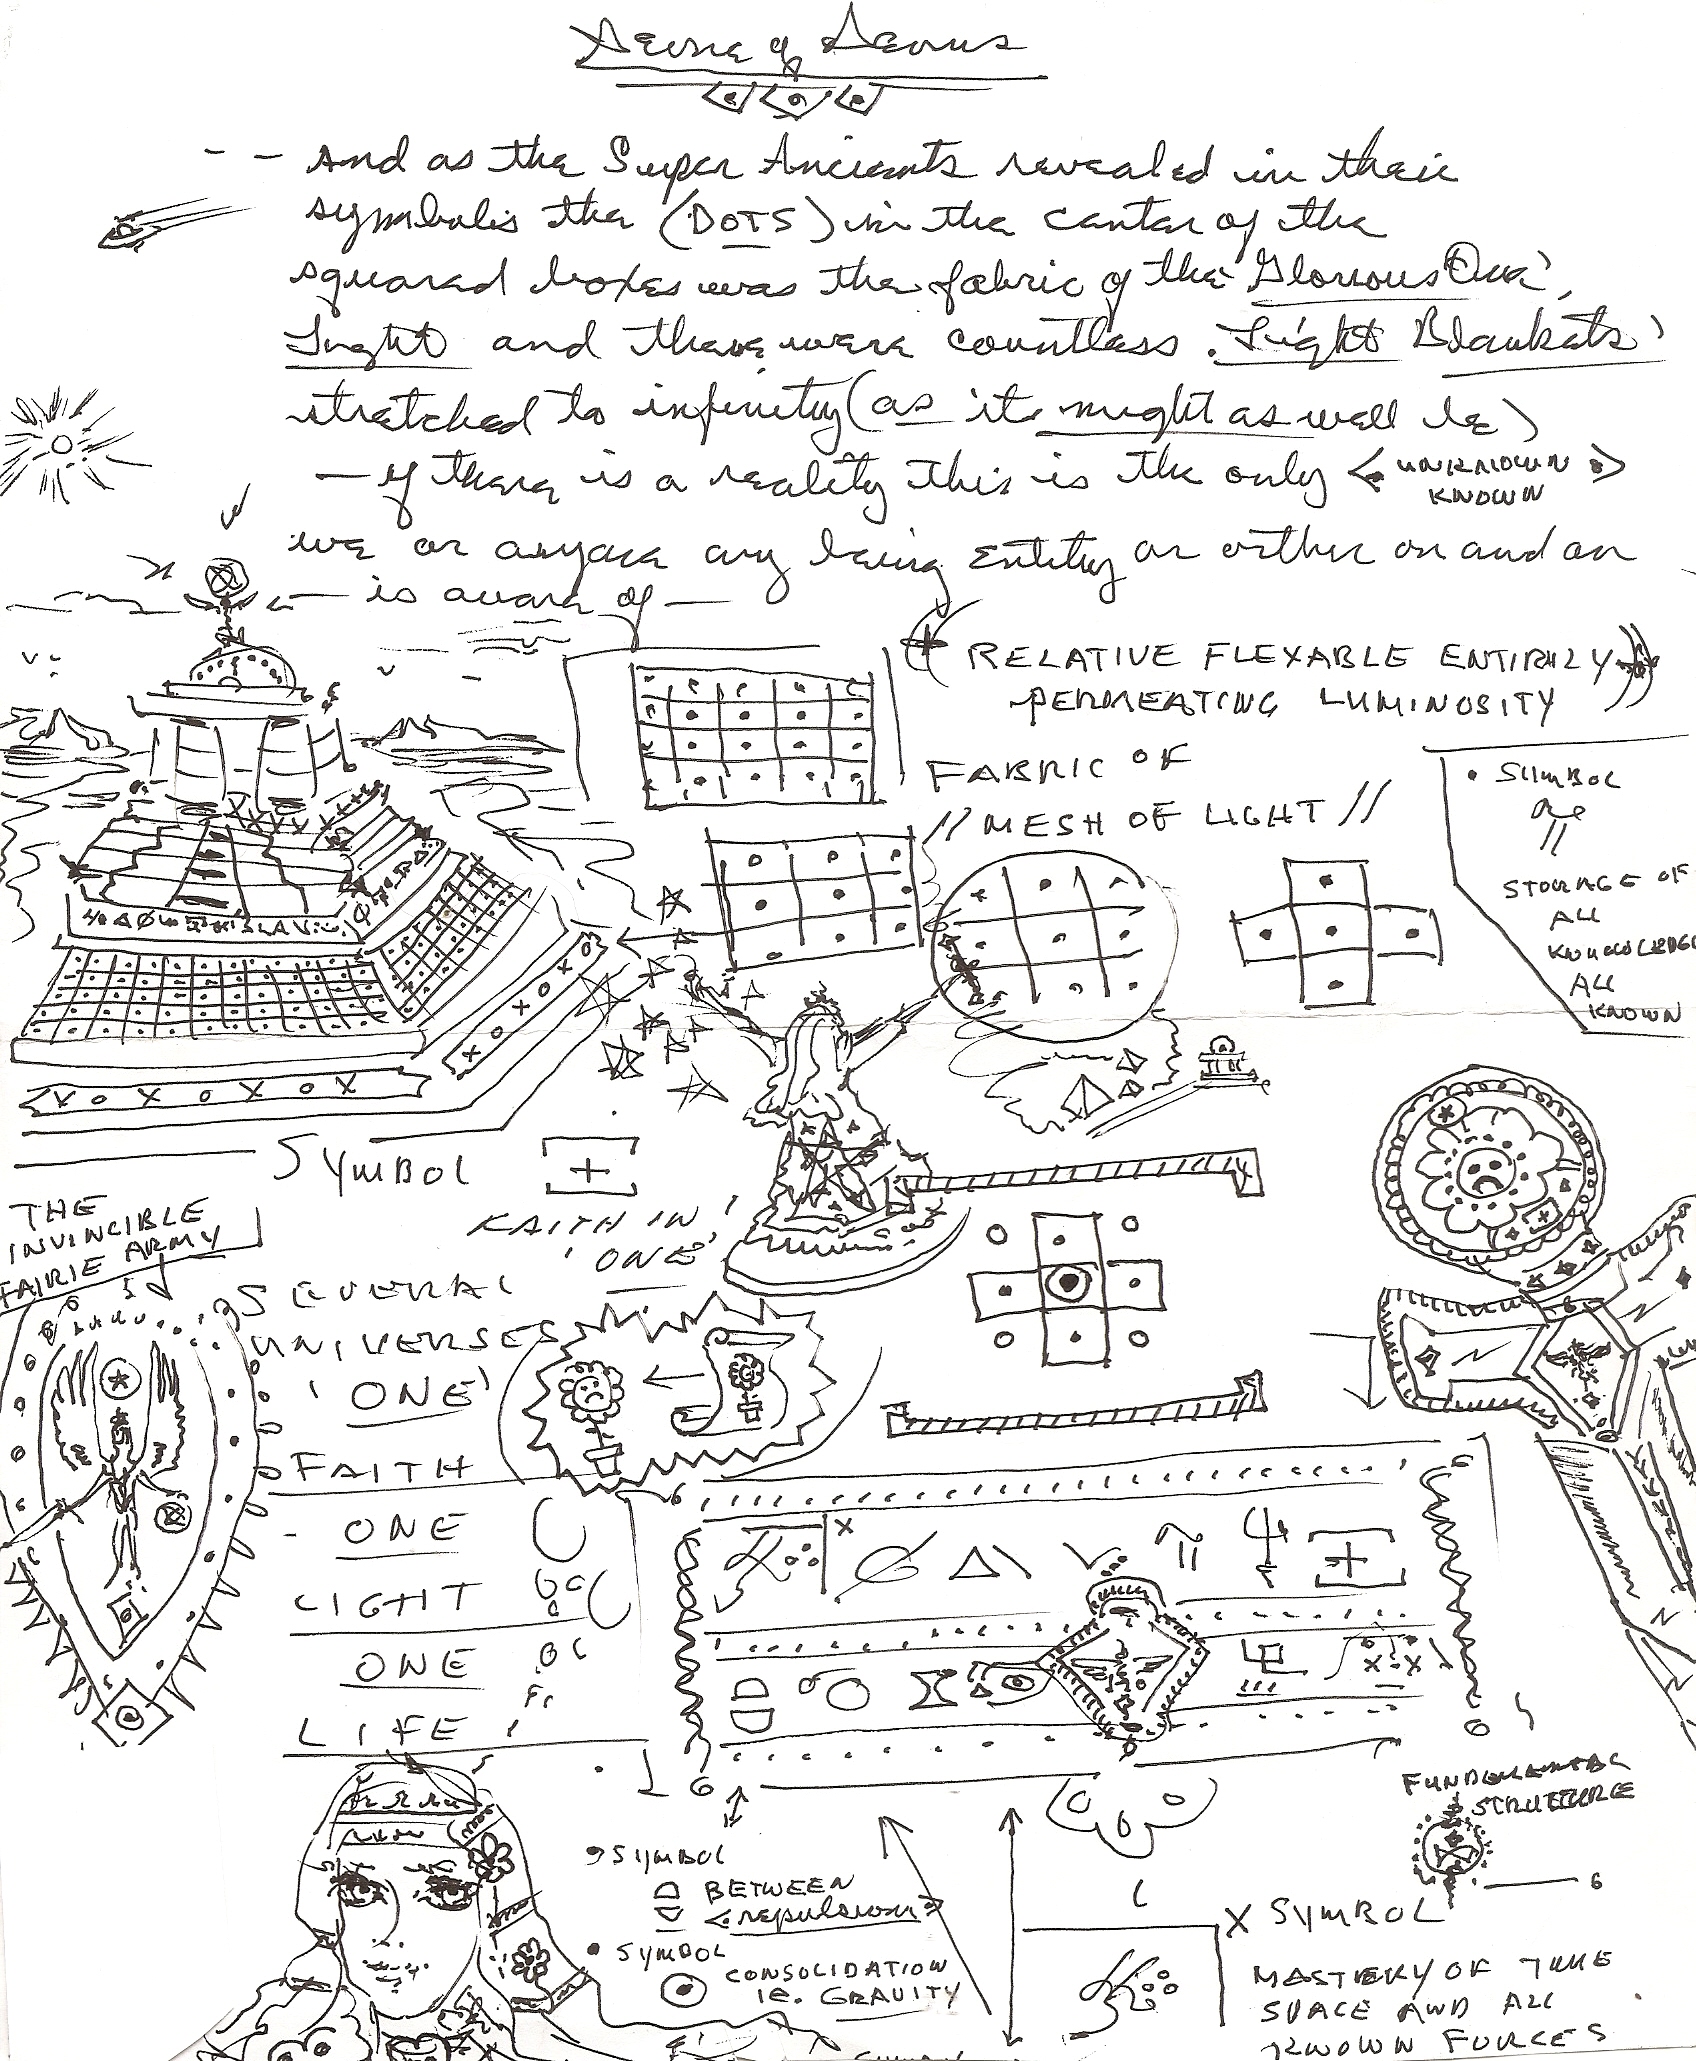 Aeons of Aeons
-- And as the Super Ancients revealed in their
symbolis the (DOTS) in the center of the
squared boxes was the fabric of the 'Glorious One'
Light and there were countless 'Light Blankets'
stretched to infinity (as it might as well be)
— If there is a reality this is the only <UNKNOWN>
KNOWN
we or anyone any being Entity or either on and on
— is aware of —
(RELATIVE FLEXABLE ENTIRILY
PERMEATING LUMINOSITY)
FABRIC OF
// MESH OF LIGHT //
• SYMBOL
STORAGE OF
ALL
KNOWLEDGE
ALL
KNOWN
SYMBOL [+]
FAITH IN
'ONE'
THE
INVINCIBLE
FAIRIE ARMY
SEVERAL
UNIVERSES
'ONE'
FAITH
- ONE
LIGHT
ONE
LIFE
FUNDEMENTAL
STRUTURE
• SYMBOL
BETWEEN
<repulsion>
• SYMBOL
CONSOLIDATION
IE. GRAVITY
X SYMBOL
MASTERY OF TIME
SPACE AND ALL
KNOWN FORCES